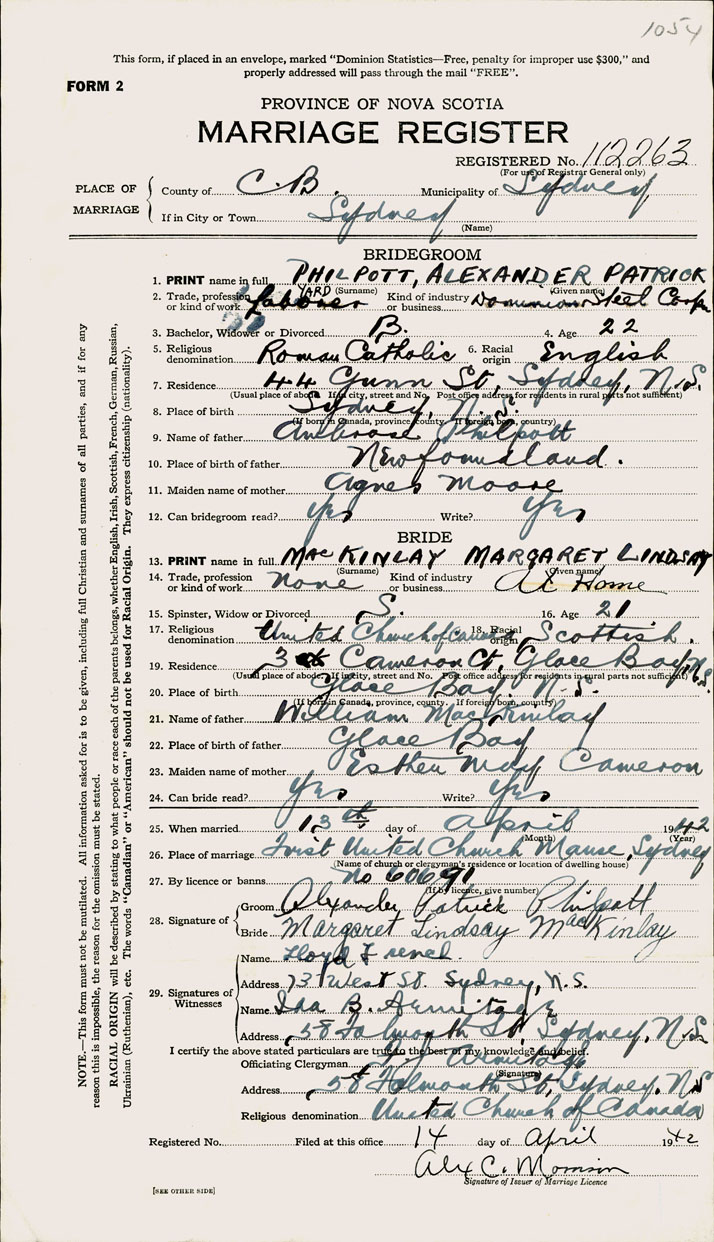 1054
This form, if placed in an envelope, marked "Dominion Statistics—Free, penalty for improper use $300," and
properly addressed will pass through the mail "FREE".
FORM 2
PROVINCE OF NOVA SCOTIA
MARRIAGE REGISTER
REGISTERED No. 112263
(For use of Registrar General only)
PLACE OF MARRIAGE
County of C.B. Municipality of Sydney
If in City or Town Sydney
(Name)
BRIDEGROOM
1. PRINT name in full PHILPOTT, ALEXANDER PATRICK
(Surname) (Given name)
2. Trade, profession or kind of work YARD labourer Kind of industry or business Dominion Steel Corp
3. Bachelor, Widower or Divorced B. 4. Age 22
5. Religious denomination Roman Catholic 6. Racial origin English
7. Residence 44 Gunn St, Sydney, N.S.
(Usual place of abode. If in city, street and No. Post office address for residents in rural parts not sufficient)
8. Place of birth Sydney, N.S.
(If born in Canada, province, county. If foreign born, country)
9. Name of father Ambrose Philpott
10. Place of birth of father Newfoundland.
11. Maiden name of mother Agnes Moore
12. Can bridegroom read? Yes Write? Yes
BRIDE
13. PRINT name in full MacKINLAY MARGARET LINDSAY
(Surname) (Given name)
14. Trade, profession or kind of work none Kind of industry or business At Home
15. Spinster, Widow or Divorced S. 16. Age 21
17. Religious denomination United Church of Canada 18. Racial origin Scottish.
19. Residence 3 Cameron Ct, Glace Bay, N.S.
(Usual place of abode. If in city, street and No. Post office address for residents in rural parts not sufficient)
20. Place of birth Glace Bay, N.S.
(If born in Canada, province, county. If foreign born, country)
21. Name of father William MacKinlay
22. Place of birth of father Glace Bay
23. Maiden name of mother Esther May Cameron
24. Can bride read? Yes Write? Yes
25. When married 13th day of April 1942
(Month) (Year)
26. Place of marriage First United Church Manse, Sydney
(Name of church or clergyman's residence or location of dwelling house)
27. By licence or banns No 60691
(If by licence, give number)
28. Signature of Groom Alexander Patrick Philpott
Bride Margaret Lindsay MacKinlay
29. Signatures of Witnesses
Name Lloyd French
Address 73 West St. Sydney, N.S.
Name Ida B. Armitage
Address 58 Falmouth St, Sydney, N.S.
I certify the above stated particulars are true to the best of my knowledge and belief.
Officiating Clergyman Armitage
(Signature)
Address 58 Falmouth St, Sydney, N.S
Religious denomination United Church of Canada
Registered No. Filed at this office 14 day of April 1942
Alex C. Morrison
Signature of Issuer of Marriage Licence
[SEE OTHER SIDE]
NOTE.—This form must not be mutilated. All information asked for is to be given, including full Christian and surnames of all parties, and if for any
reason this is impossible, the reason for the omission must be stated.
RACIAL ORIGIN will be described by stating to what people or race each of the parents belongs, whether English, Irish, Scottish, French, German, Russian,
Ukrainian (Ruthenian), etc. The words "Canadian" or "American" should not be used for Racial Origin. They express citizenship (nationality).